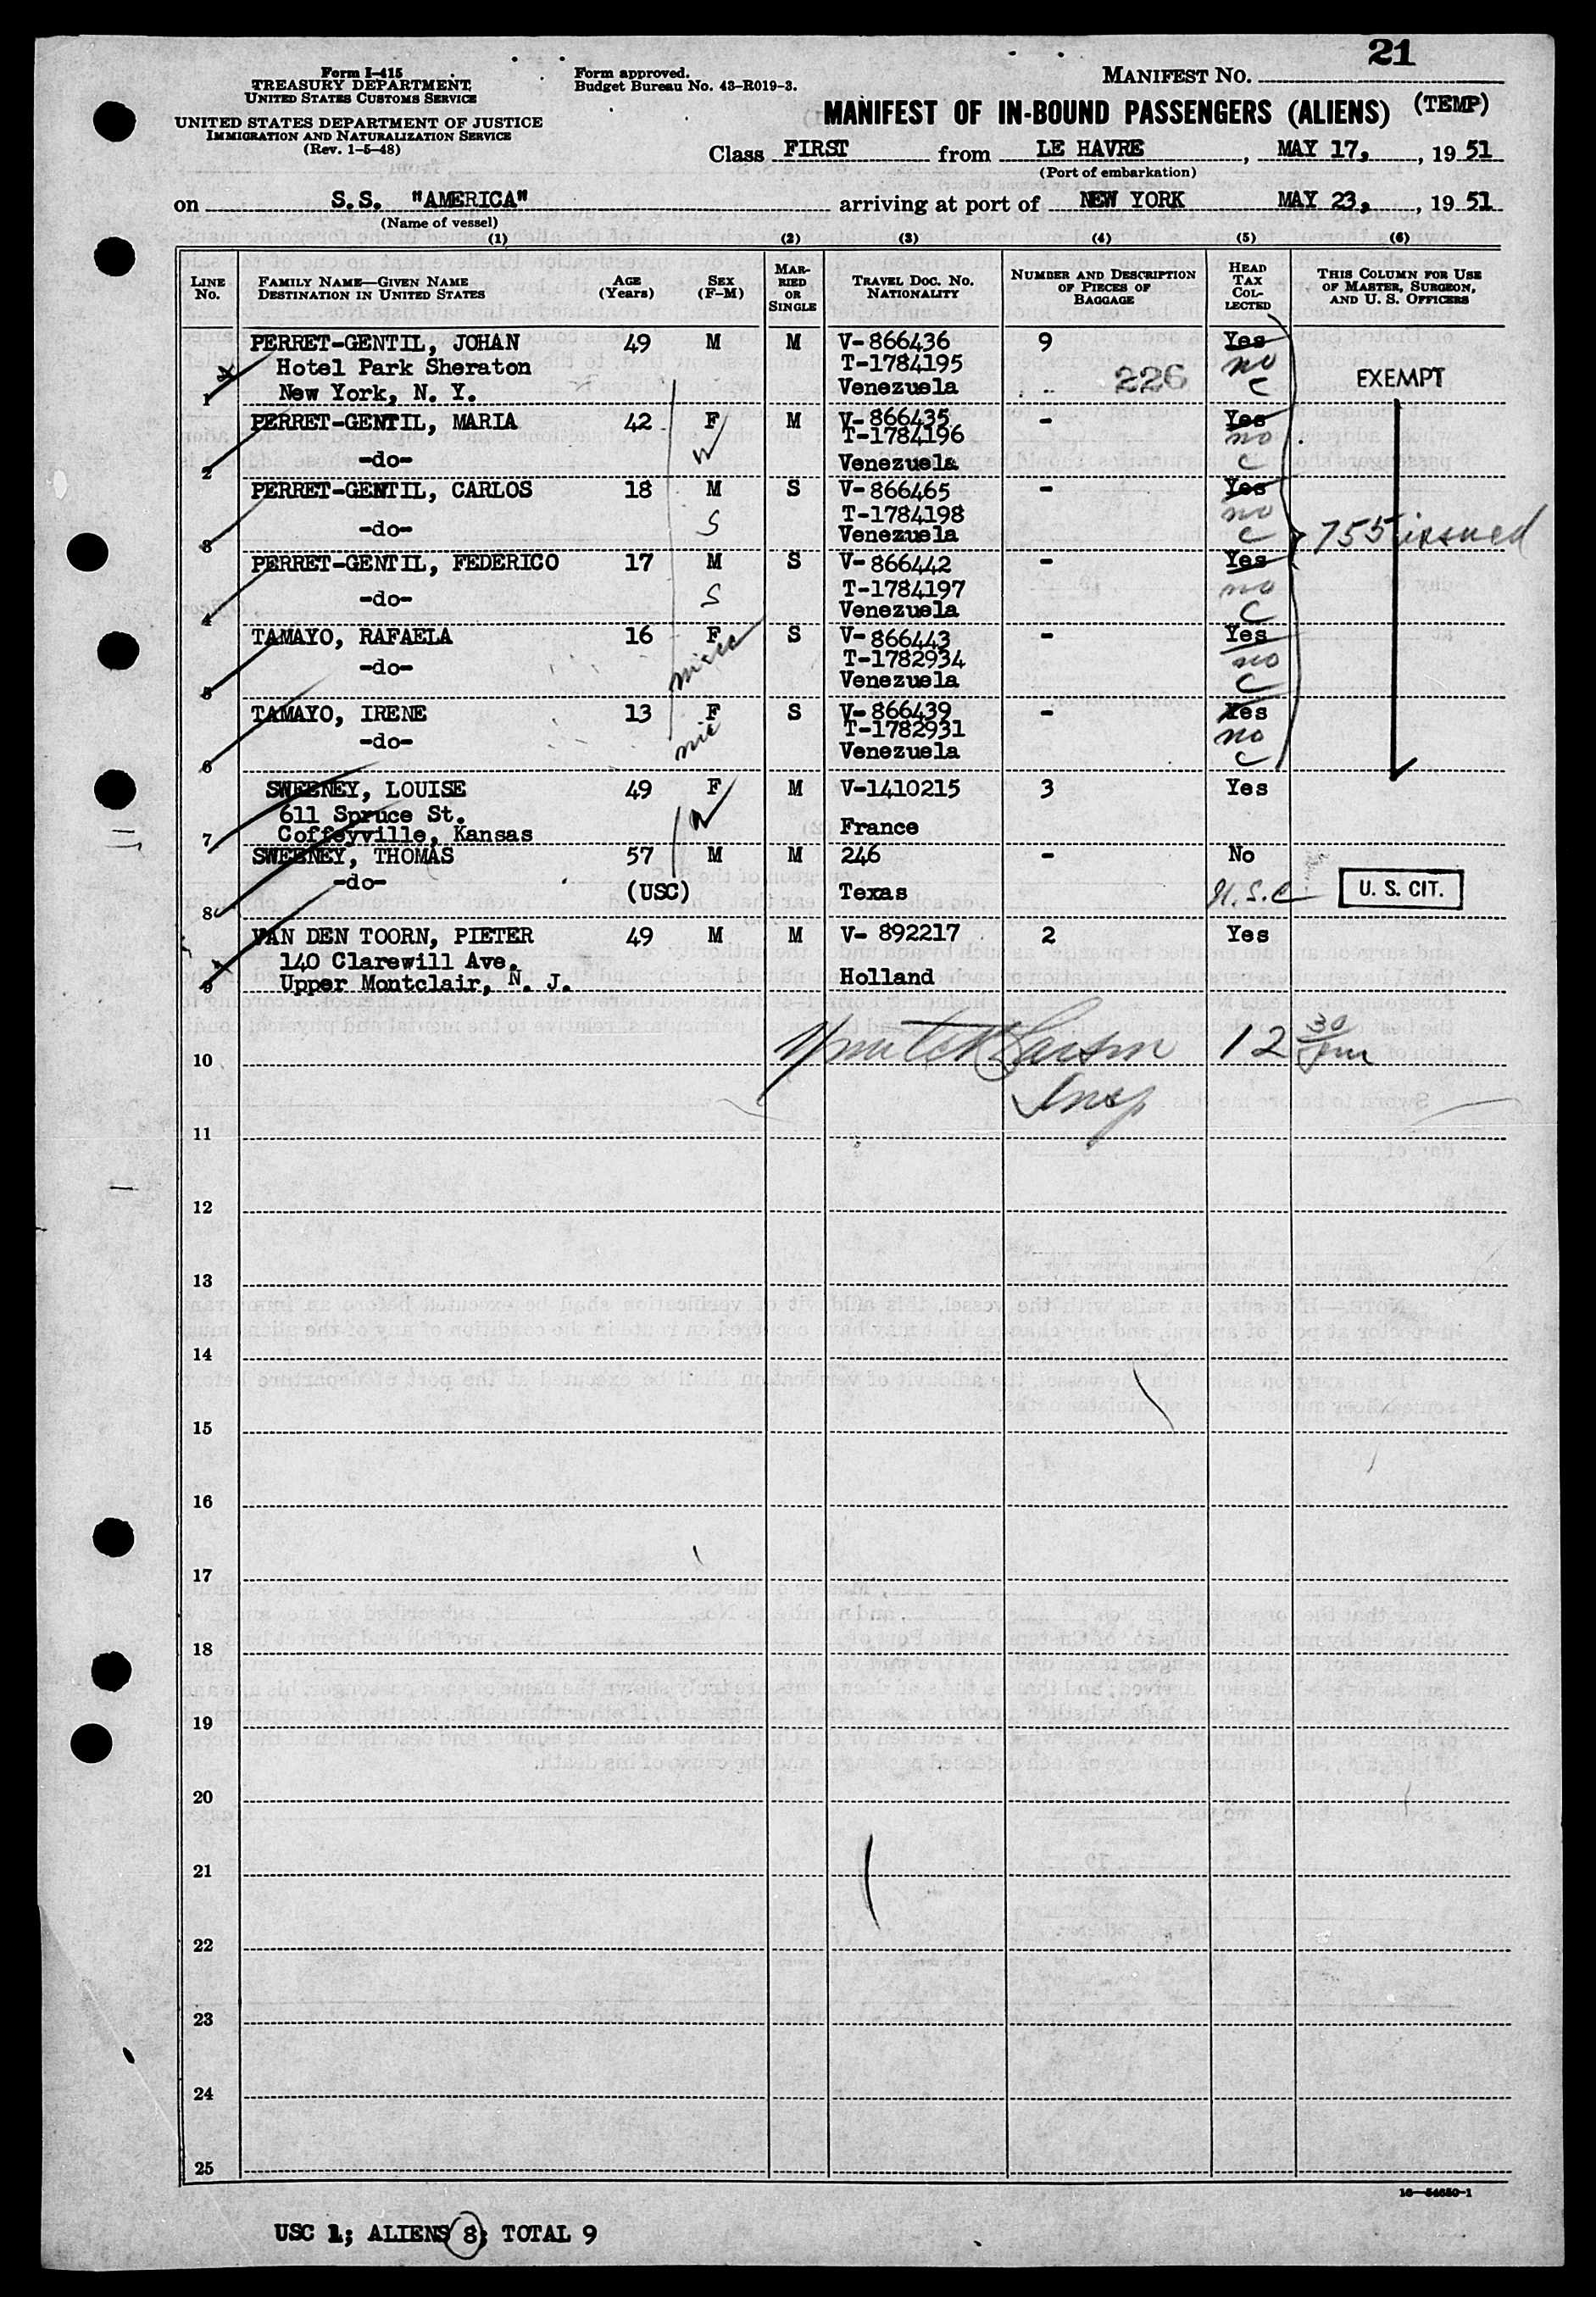 21
Form I-415
TREASURY DEPARTMENT
UNITED STATES CUSTOMS SERVICE
UNITED STATES DEPARTMENT OF JUSTICE
IMMIGRATION AND NATURALIZATION SERVICE
(Rev. 1-5-48)
Form approved.
Budget Bureau No. 43-R019-3.
MANIFEST NO.
MANIFEST OF IN-BOUND PASSENGERS (ALIENS) (TEMP)
Class FIRST from LE HAVRE, MAY 17, , 19 51
(Port of embarkation)
on S.S. "AMERICA" arriving at port of NEW YORK MAY 23, , 19 51
(Name of vessel)
(1) (2) (3) (4) (5) (6)
LINE No. FAMILY NAME—GIVEN NAME DESTINATION IN UNITED STATES AGE (Years) SEX (F-M) MARRIED OR SINGLE TRAVEL DOC. NO. NATIONALITY NUMBER AND DESCRIPTION OF PIECES OF BAGGAGE HEAD TAX COLLECTED THIS COLUMN FOR USE OF MASTER, SURGEON, AND U. S. OFFICERS
PERRET-GENTIL, JOHAN 49 M M V-866436 9 Yes
Hotel Park Sheraton T-1784195 no
1 New York, N. Y. Venezuela 226 C EXEMPT
PERRET-GENTIL, MARIA 42 F M V-866435 - Yes
T-1784196 no
2 -do- W Venezuela C
PERRET-GENTIL, CARLOS 18 M S V-866465 - Yes
T-1784198 no
3 -do- S Venezuela C 755 issued
PERRET-GENTIL, FEDERICO 17 M S V-866442 - Yes
-do- S T-1784197 no
4 Venezuela C
TAMAYO, RAFAELA 16 F S V-866443 - Yes
-do- T-1782934 no
5 Venezuela C
TAMAYO, IRENE 13 F S V-866439 - Yes
-do- T-1782931 no
6 Venezuela C
SWEENEY, LOUISE 49 F M V-1410215 3 Yes
611 Spruce St. W
7 Coffeyville, Kansas France
SWEENEY, THOMAS 57 M M 246 - No
-do- (USC) Texas U.S.C U. S. CIT.
8
VAN DEN TOORN, PIETER 49 M M V- 892217 2 Yes
140 Clarewill Ave.
9 Upper Montclair, N. J. Holland
10 12 30 pm
Insp
11
12
13
14
15
16
17
18
19
20
21
22
23
24
25
16—54650-1
USC 1; ALIENS 8; TOTAL 9